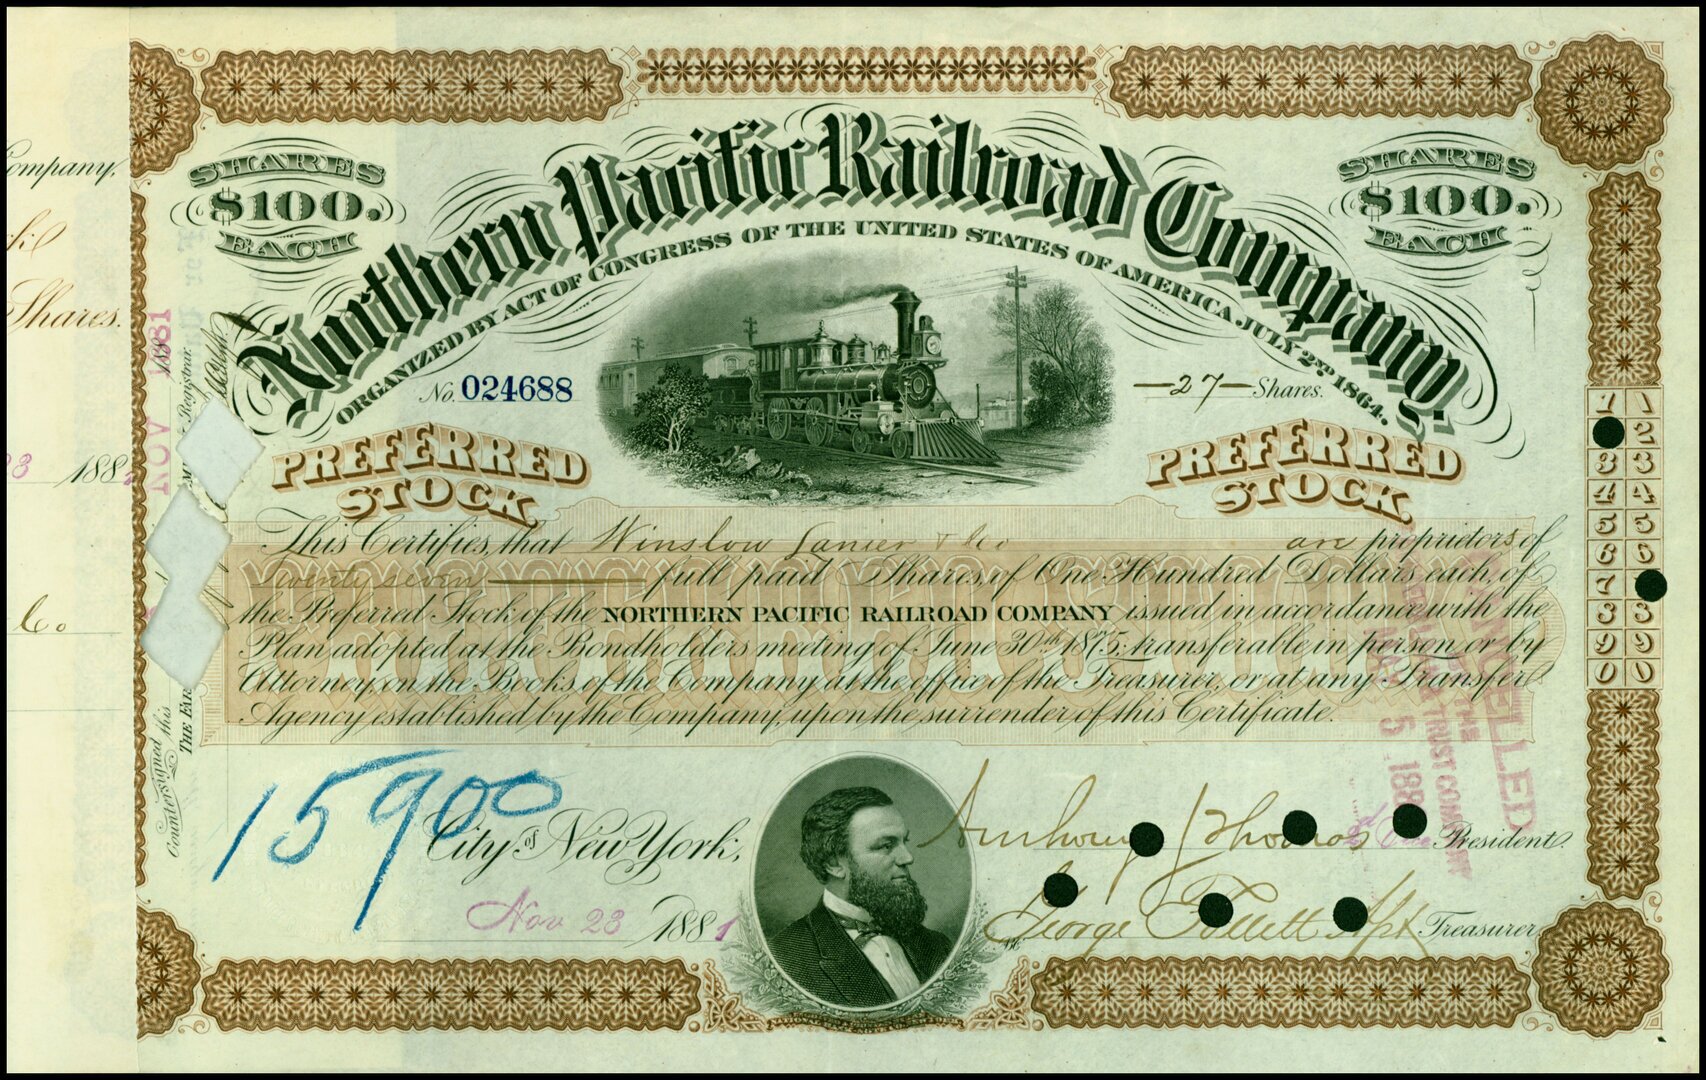 Company,
Shares.
188
Co.
SHARES
$100.
EACH
Northern Pacific Railroad Company.
SHARES
$100.
EACH
ORGANIZED BY ACT OF CONGRESS OF THE UNITED STATES OF AMERICA JULY 2ND 1864.
No. 024688
—27— Shares.
PREFERRED
STOCK
PREFERRED
STOCK.
This Certifies, that Winslow Lanier & Co are proprietors of
Twenty seven full paid Shares, of One Hundred Dollars each, of
the Preferred Stock of the NORTHERN PACIFIC RAILROAD COMPANY issued in accordance with the
Plan adopted at the Bondholders meeting of June 30th 1875; transferable in person or by
Attorney, on the Books of the Company at the office of the Treasurer, or at any Transfer
Agency established by the Company, upon the surrender of this Certificate.
15900
City of New York,
Nov 23 1881
Anthony J Thomas President.
George Follett Treasurer
1 1
2
3 3
4 4
5 5
6 6
7
8 8
9 9
0 0
NOV 1881
Registrar.
Countersigned this
THE FAR
CANCELLED
THE
& TRUST COMPANY
5 1881